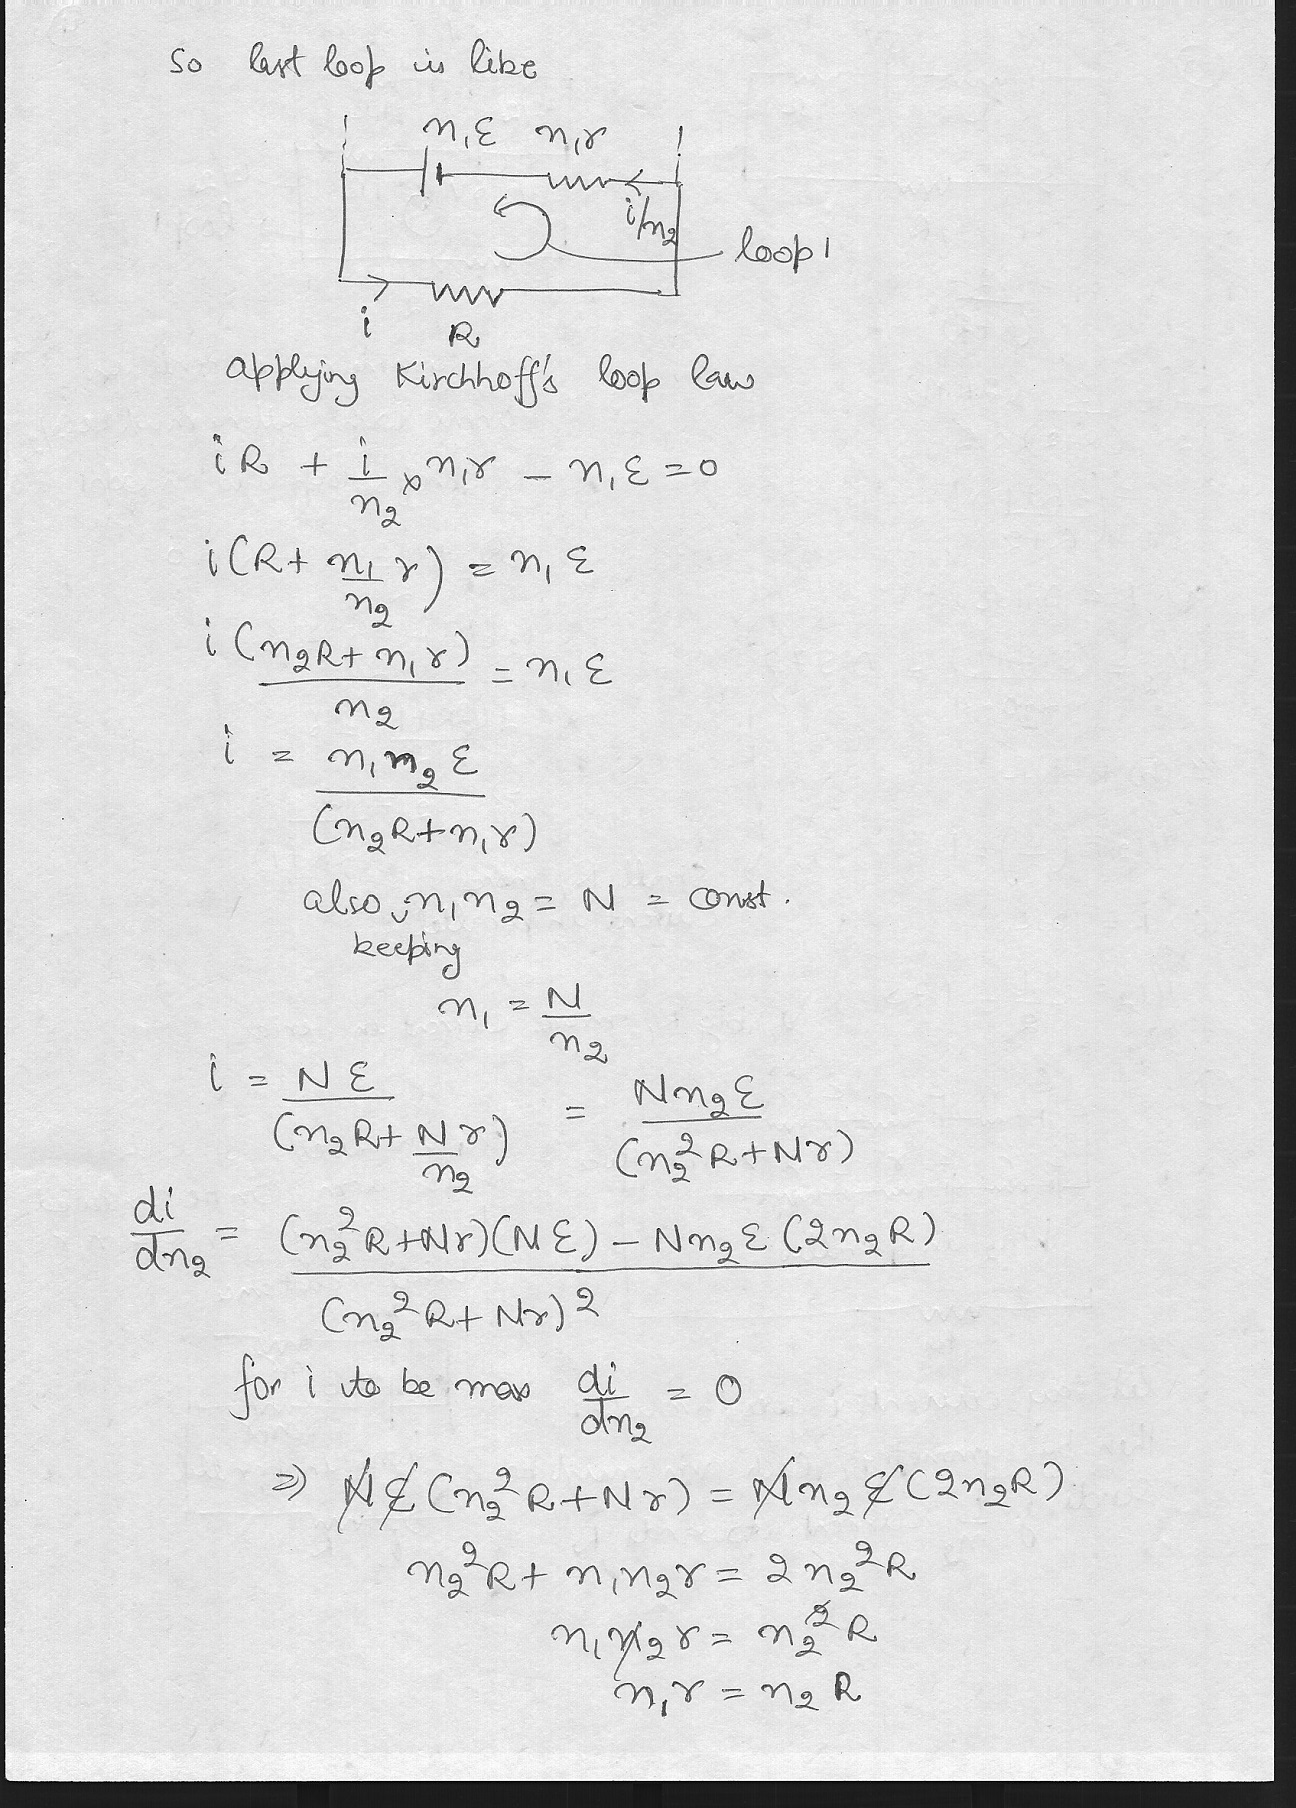 so last loop is like
n₁ε n₁r
i/n₂
loop 1
i R
applying Kirchhoff's loop law
iR + i/n₂ × n₁r - n₁ε = 0
i(R + n₁/n₂ r) = n₁ε
i(n₂R + n₁r)/n₂ = n₁ε
i = n₁n₂ε/(n₂R + n₁r)
also, n₁n₂ = N = const.
keeping
n₁ = N/n₂
i = Nε/(n₂R + N/n₂ r) = Nn₂ε/(n₂²R + Nr)
di/dn₂ = (n₂²R + Nr)(Nε) - Nn₂ε(2n₂R)/(n₂²R + Nr)²
for i to be max di/dn₂ = 0
⇒ Nε(n₂²R + Nr) = Nn₂ε(2n₂R)
n₂²R + n₁n₂r = 2n₂²R
n₁n₂r = n₂²R
n₁r = n₂R